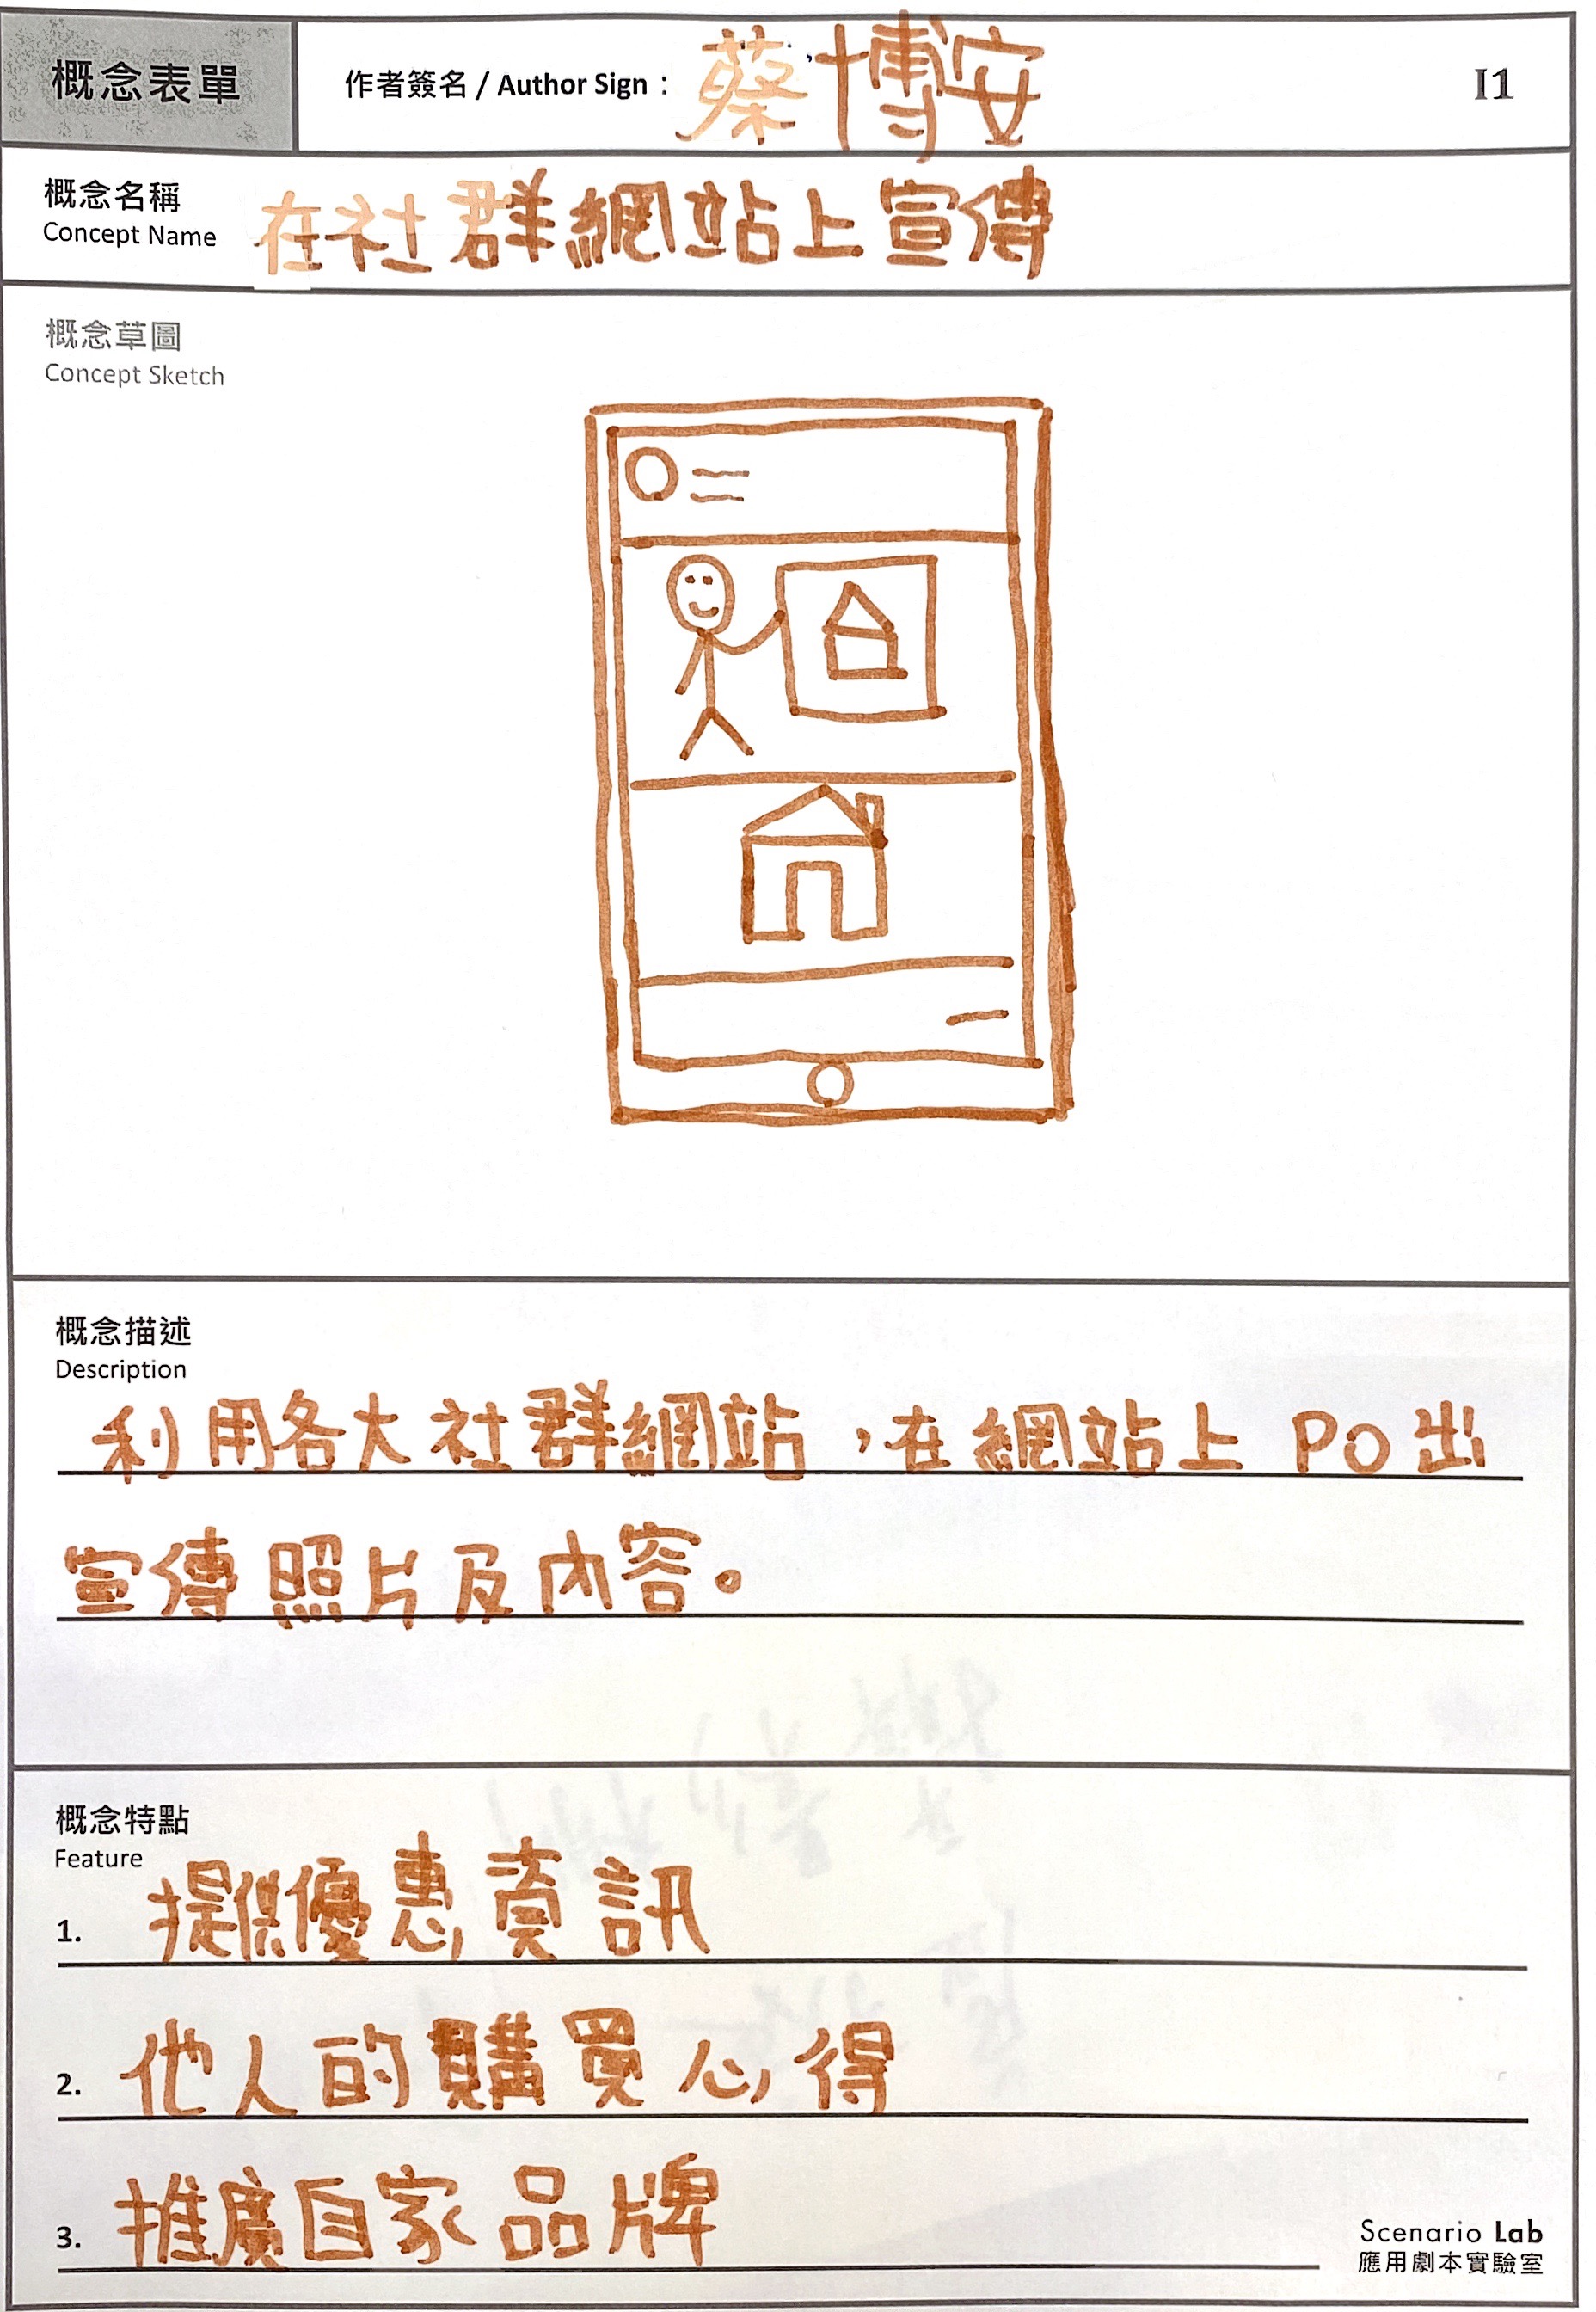 概念表單
作者簽名 / Author Sign：蔡博安
I1
概念名稱
Concept Name
在社群網站上宣傳
概念草圖
Concept Sketch
概念描述
Description
利用各大社群網站，在網站上 PO 出
宣傳照片及內容。
概念特點
Feature
1. 提供優惠資訊
2. 他人的購買心得
3. 推廣自家品牌
Scenario Lab
應用劇本實驗室